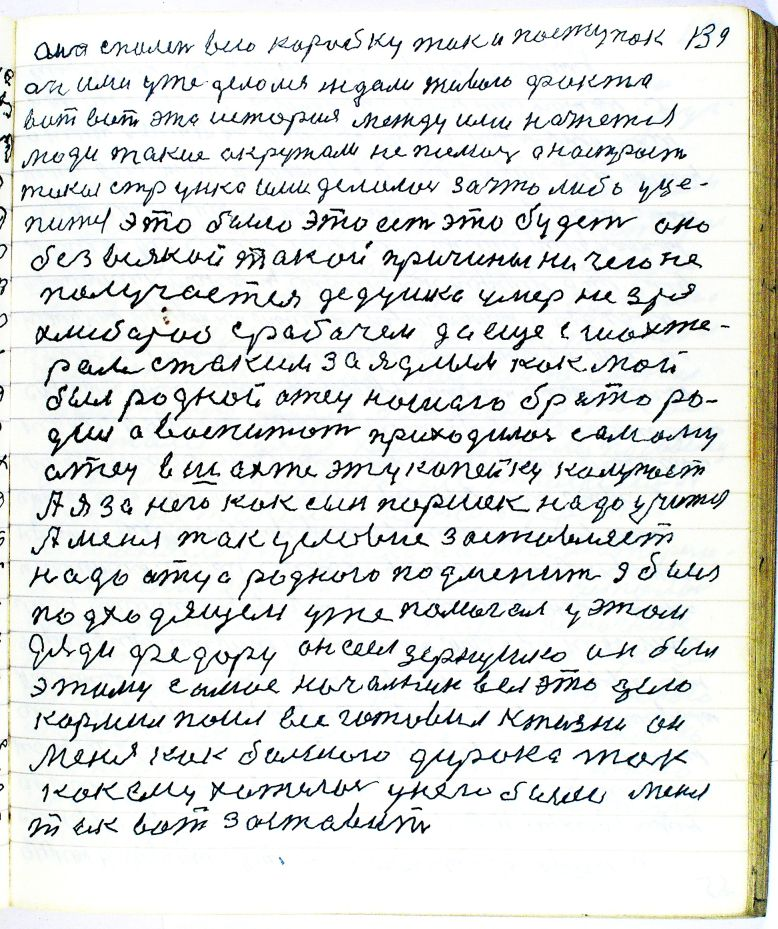 она спален всю коробку так и поступок 139
он ими уже деломя ждали живого факта
вот вот эта история между ими начнетыя
люди такие окружали не помоч а настроит
такая струнка ими делалоя за что либо уце-
питы это было это ест это будет оно
без всякой такой причины ни чего не
получается дедушка умер не зря
хлибороб с рабачем да еще с шахте-
рам стаким заядлым как мой
был родной отец нашего брата ро-
дил а воспитат приходилоя самому
отец в шахте эту копейку колупаст
А я за него как сын поршек надо учитыя
А меня так условие заставляет
надо отца родного подменит я был
подходящем уже помогал у этом
дяди Федору он сеял зернушко он был
этому самое началнин вел это дело
кормил поил все готовил к жизни он
меня как болшого дурока так
как ему хателоя унего были меня
так вот заставит